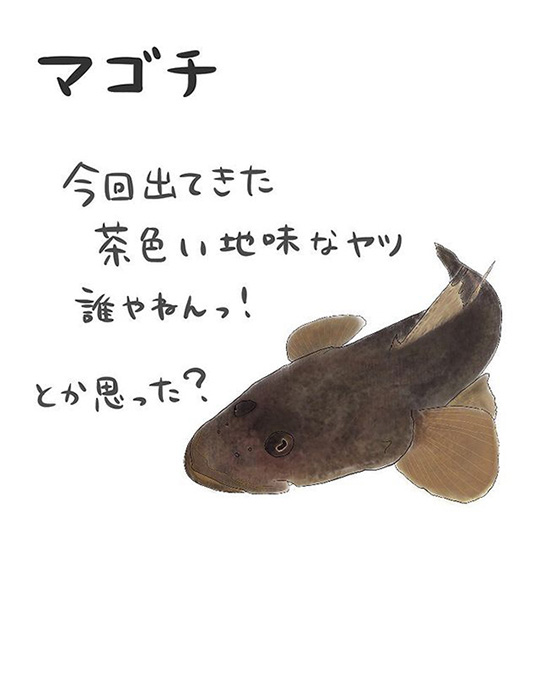 マゴチ
今回出てきた
茶色い地味なヤツ
誰やねんっ!
とか思った?